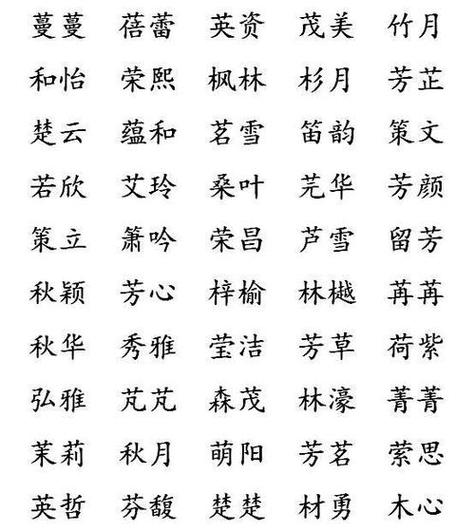 蔓蔓 蓓蕾 英资 茂美 竹月
和怡 荣熙 枫林 杉月 芳芷
楚云 蕴和 茗雪 笛韵 策文
若欣 艾玲 桑叶 芫华 芳颜
策立 箫吟 荣昌 芦雪 留芳
秋颖 芳心 梓榆 林樾 苒苒
秋华 秀雅 莹洁 芳草 荷紫
弘雅 芃芃 森茂 林濠 菁菁
茉莉 秋月 萌阳 芳茗 萦思
英哲 芬馥 楚楚 材勇 木心